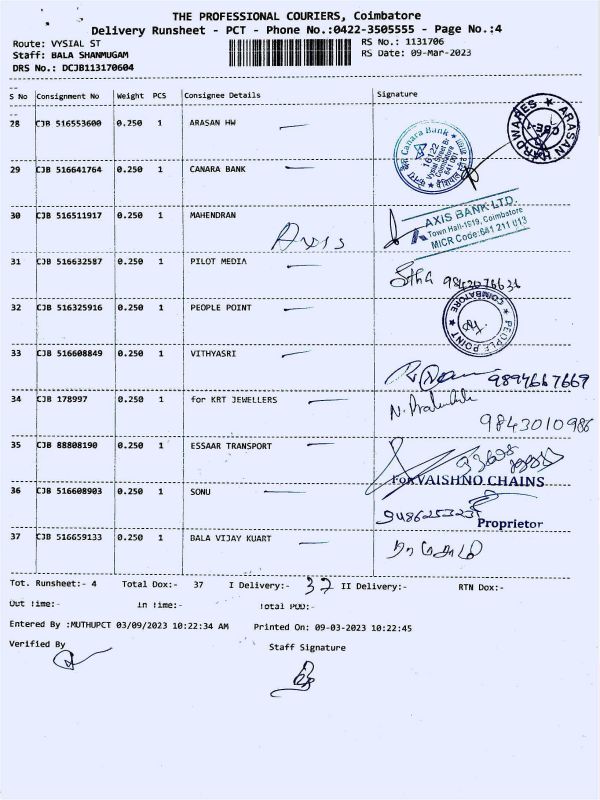 THE PROFESSIONAL COURIERS, Coimbatore
Delivery Runsheet - PCT - Phone No.:0422-3505555 - Page No.:4
Route: VYSIAL ST
RS No.: 1131706
Staff: BALA SHANMUGAM
RS Date: 09-Mar-2023
DRS No.: DCJB113170604
S No Consignment No Weight PCS Consignee Details Signature
28 CJB 516553600 0.250 1 ARASAN HW
ARASAN HARDWARES
29 CJB 516641764 0.250 1 CANARA BANK
Canara Bank
16122
Vysial Street Br.
Coimbatore
641 001
30 CJB 516511917 0.250 1 MAHENDRAN
Axis
AXIS BANK LTD.
Town Hall-1519, Coimbatore
MICR Code:641 211 013
31 CJB 516632587 0.250 1 PILOT MEDIA
32 CJB 516325916 0.250 1 PEOPLE POINT
PEOPLE POINT ★ COIMBATORE ★
33 CJB 516608849 0.250 1 VITHYASRI
9894667669
34 CJB 178997 0.250 1 for KRT JEWELLERS
9843010986
35 CJB 88808190 0.250 1 ESSAAR TRANSPORT
36 CJB 516608903 0.250 1 SONU
For VAISHNO CHAINS
Proprietor
37 CJB 516659133 0.250 1 BALA VIJAY KUART
Tot. Runsheet:- 4 Total Dox:- 37 I Delivery:- 37 II Delivery:- RTN Dox:-
Out Time:- In Time:- Total POD:-
Entered By :MUTHUPCT 03/09/2023 10:22:34 AM Printed On: 09-03-2023 10:22:45
Verified By Staff Signature